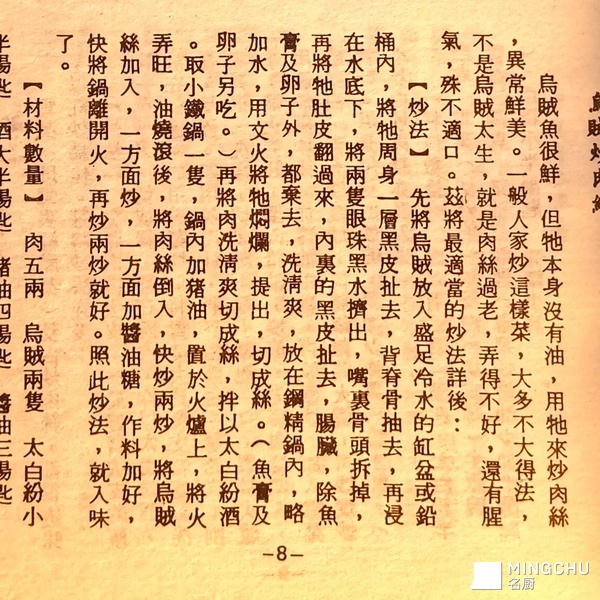 烏賊炒肉絲
烏賊魚很鮮，但牠本身沒有油，用牠來炒肉絲
，異常鮮美。一般人家炒這樣菜，大多不大得法，
不是烏賊太生，就是肉絲過老，弄得不好，還有腥
氣，殊不適口。茲將最適當的炒法詳後：
【炒法】　先將烏賊放入盛足冷水的缸盆或鉛
桶內，將牠周身一層黑皮扯去，背脊骨抽去，再浸
在水底下，將兩隻眼珠黑水擠出，嘴裏骨頭拆掉，
再將牠肚皮翻過來，內裏的黑皮扯去，腸臟，除魚
膏及卵子外，都棄去，洗淸爽，放在鋼精鍋內，略
加水，用文火將牠燜爛，提出，切成絲。（魚膏及
卵子另吃。）再將肉洗淸爽切成絲，拌以太白粉酒
。取小鐵鍋一隻，鍋內加猪油，置於火爐上，將火
弄旺，油燒滾後，將肉絲倒入，快炒兩炒，將烏賊
絲加入，一方面炒，一方面加醬油糖，作料加好，
快將鍋離開火，再炒兩炒就好。照此炒法，就入味
了。
【材料數量】　肉五兩　烏賊兩隻　太白粉小
半湯匙　酒大半湯匙　猪油四湯匙　醬油三湯匙
—8—
MINGCHU
名厨